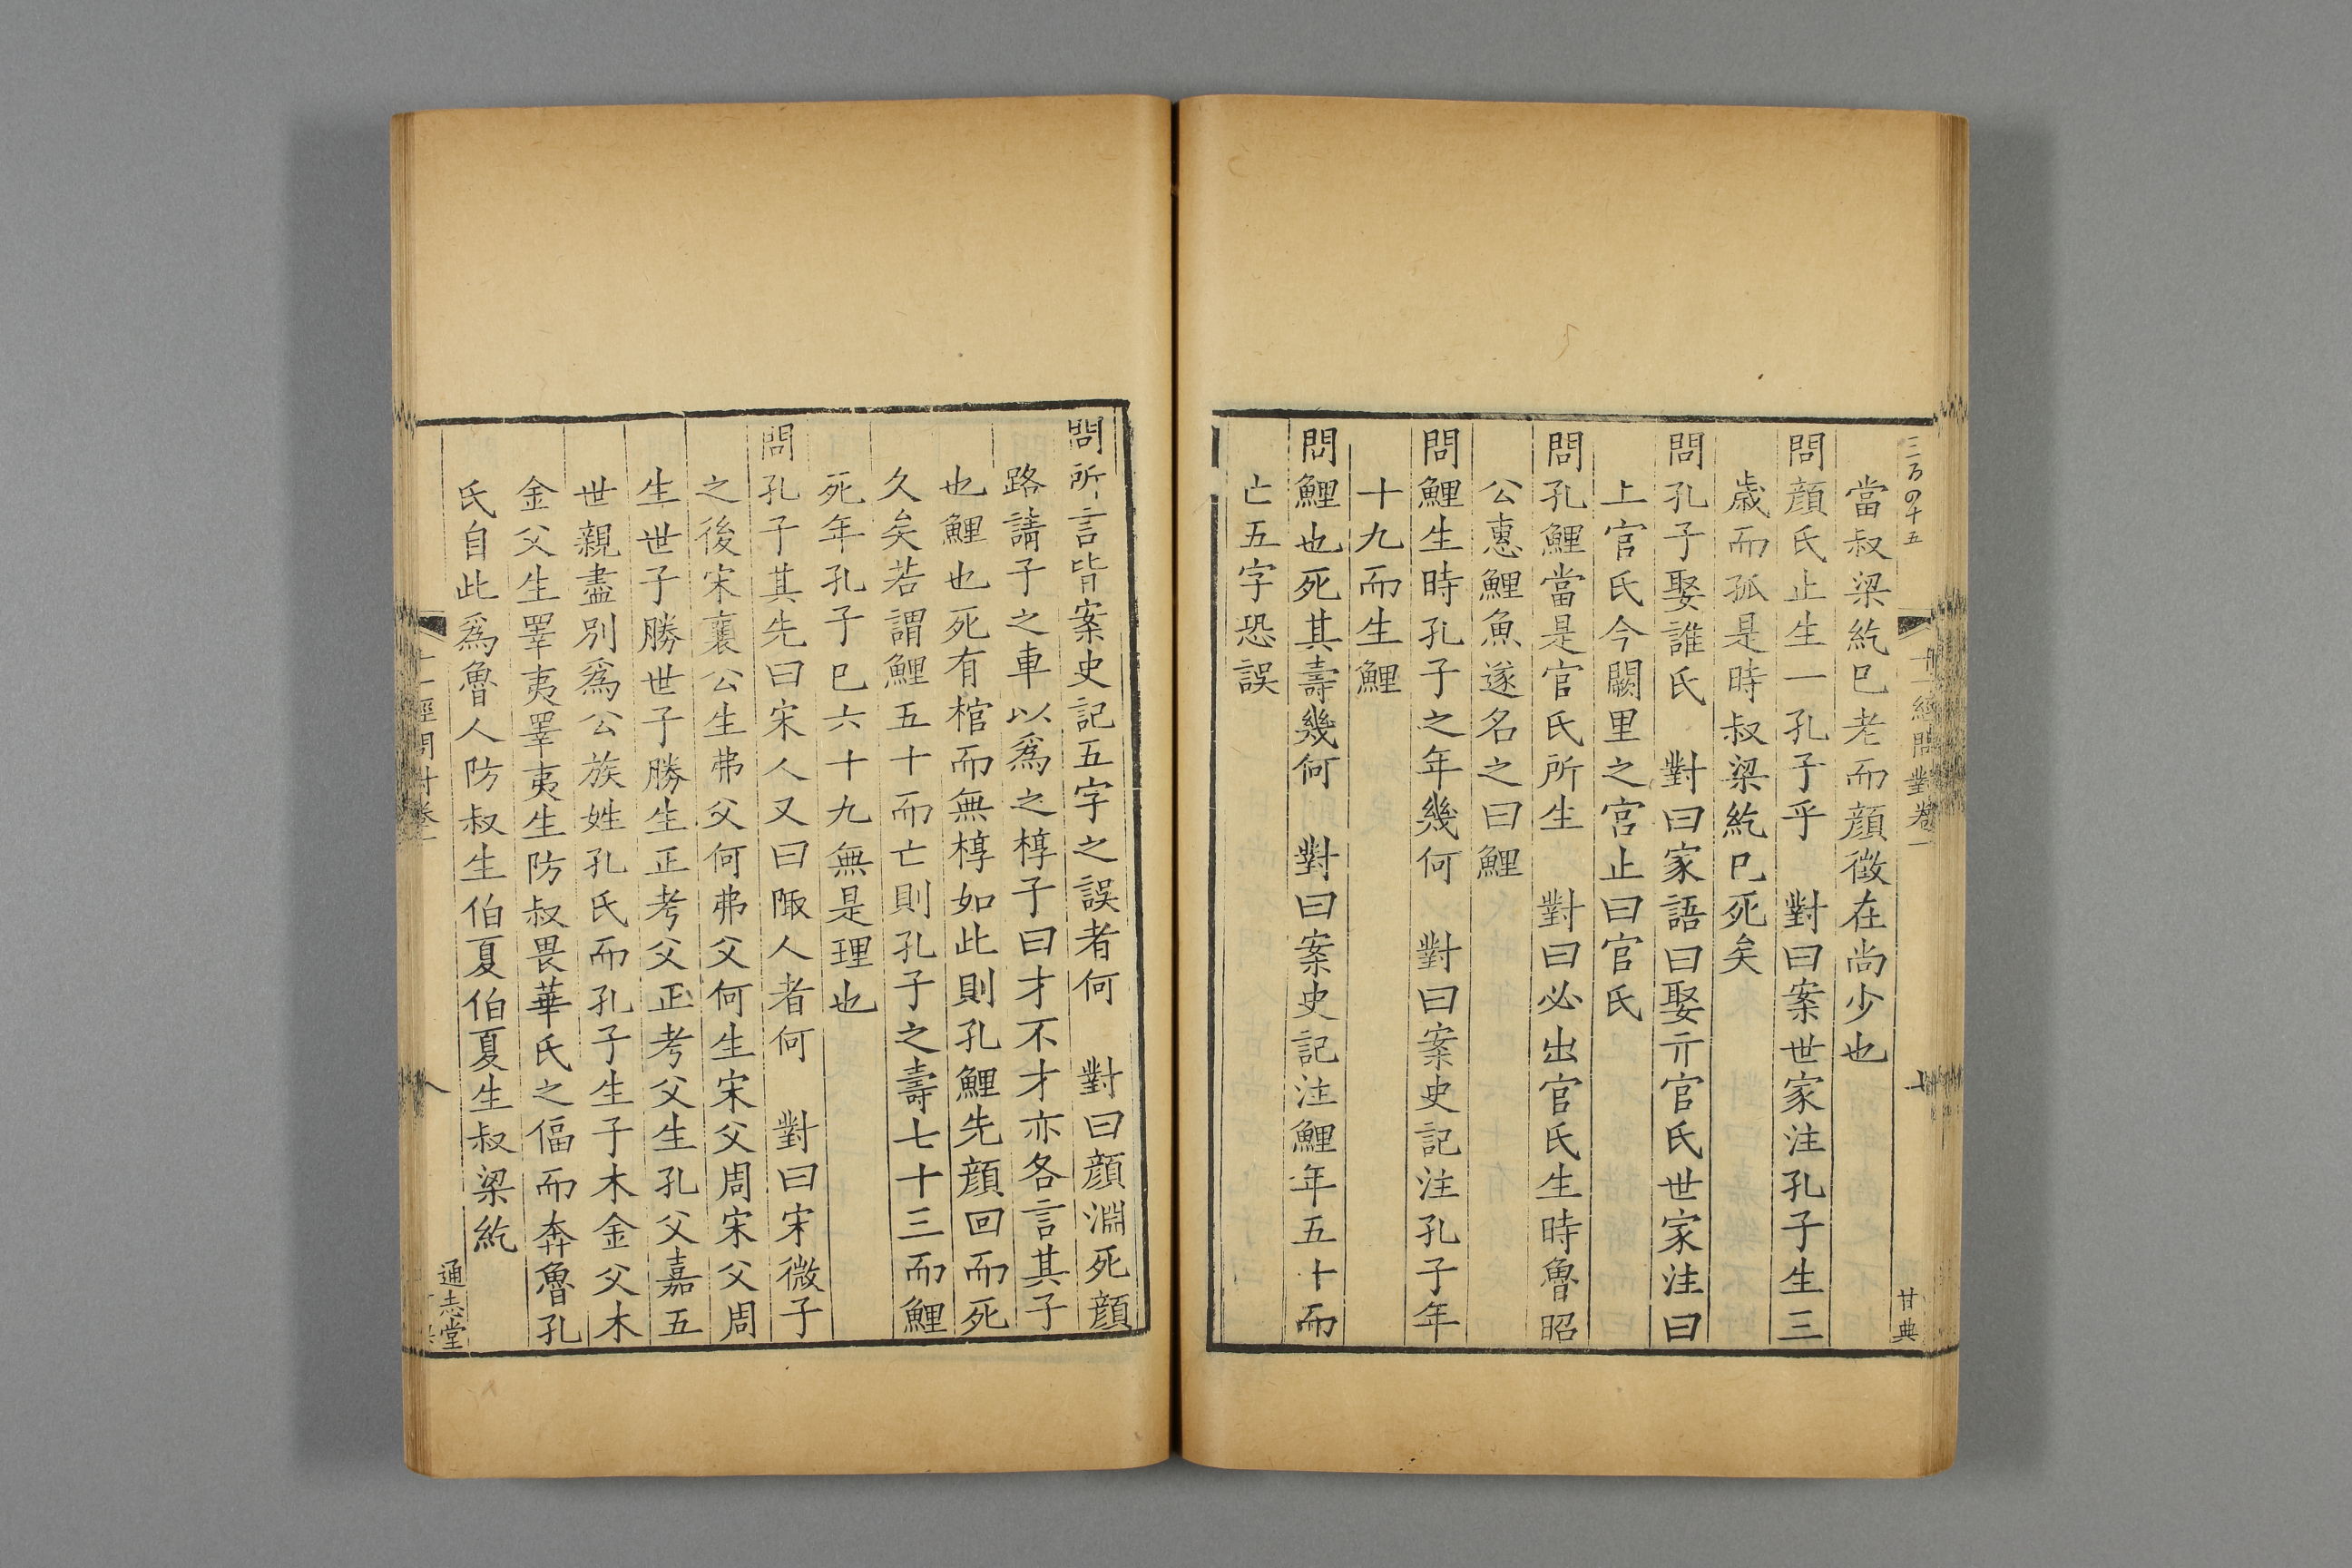 三百四十五
十一經問對卷一
七
甘典
當叔梁紇巳老而顔徵在尚少也
問顔氏止生一孔子乎　對曰案世家注孔子生三
歲而孤是時叔梁紇巳死矣
問孔子娶誰氏　對曰家語曰娶亓官氏世家注曰
上官氏今闕里之宫止曰官氏
問孔鯉當是官氏所生　對曰必出官氏生時魯昭
公惠鯉魚遂名之曰鯉
問鯉生時孔子之年幾何　對曰案史記注孔子年
十九而生鯉
問鯉也死其壽幾何　對曰案史記注鯉年五十而
亡五字恐誤
問所言皆案史記五字之誤者何　對曰顔淵死顔
路請子之車以爲之椁子曰才不才亦各言其子
也鯉也死有棺而無椁如此則孔鯉先顔回而死
久矣若謂鯉五十而亡則孔子之壽七十三而鯉
死年孔子巳六十九無是理也
問孔子其先曰宋人又曰陬人者何　對曰宋微子
之後宋襄公生弗父何弗父何生宋父周宋父周
生世子勝世子勝生正考父正考父生孔父嘉五
世親盡别爲公族姓孔氏而孔子生子木金父木
金父生睪夷睪夷生防叔畏華氏之偪而奔魯孔
氏自此爲魯人防叔生伯夏伯夏生叔梁紇
十一經問對卷一
八
通志堂